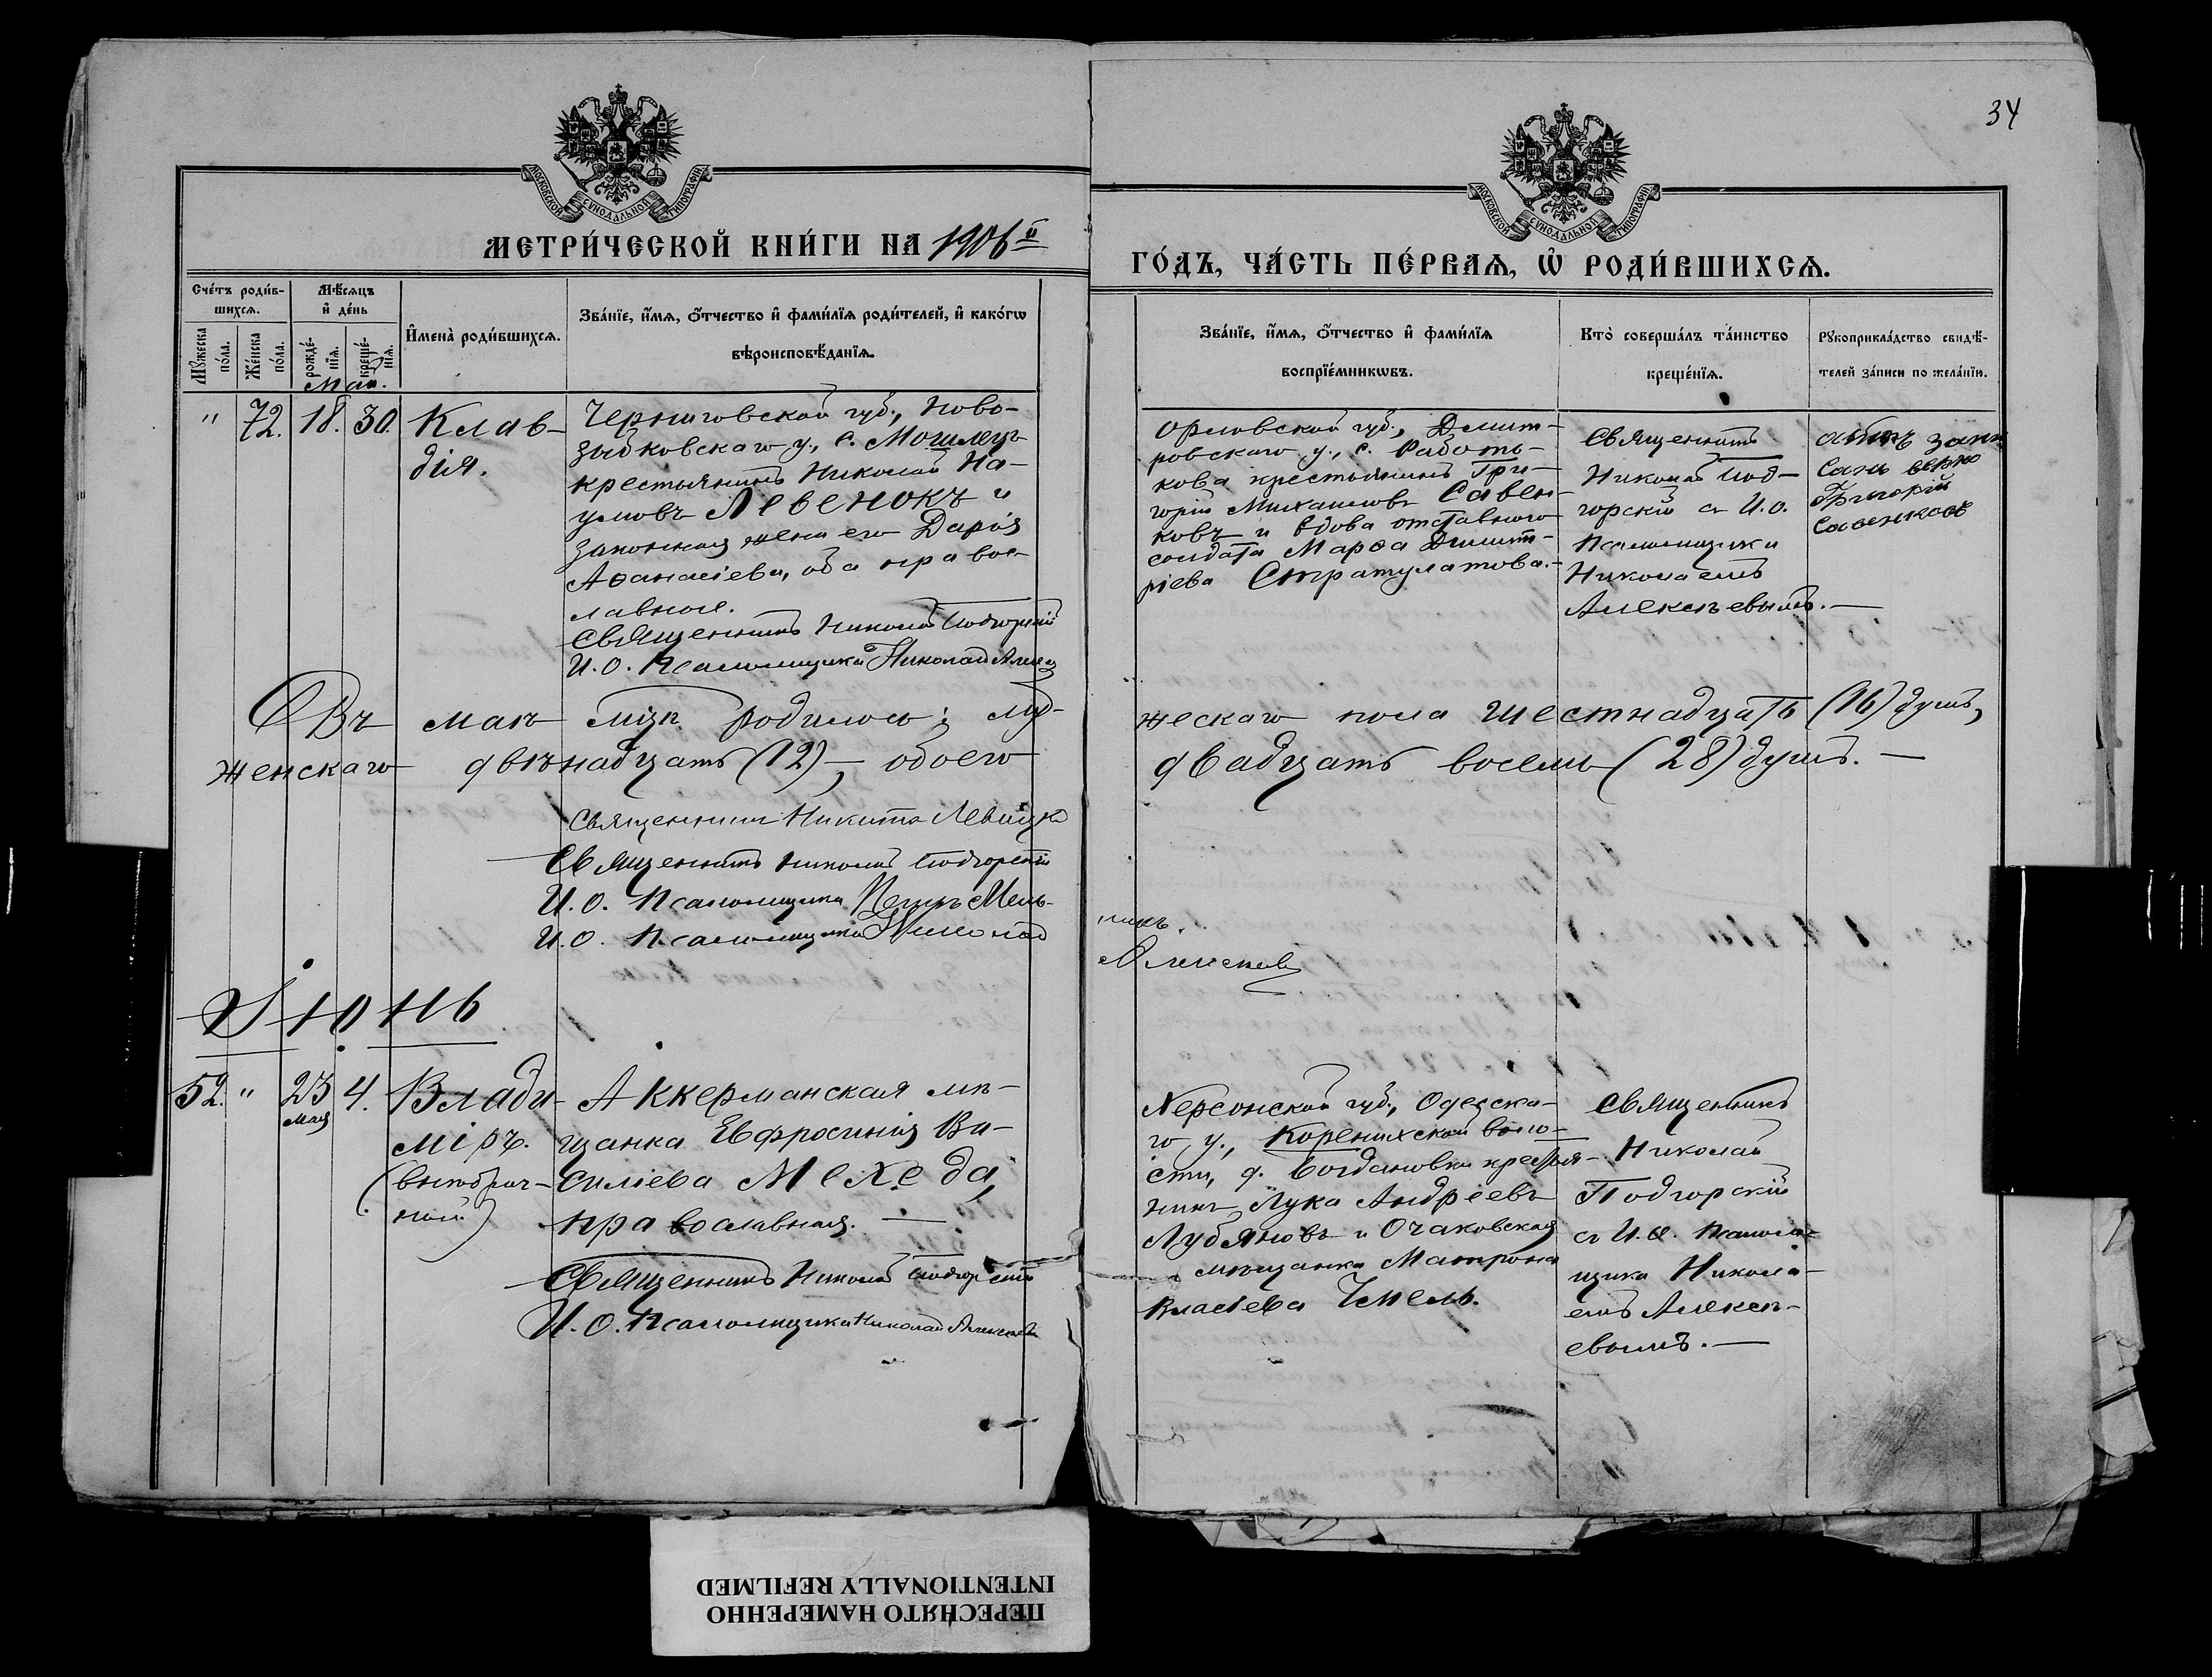 34
МОСКОВСКОЙ СѴНОДАЛЬНОЙ ТИПОГРАФІИ
МОСКОВСКОЙ СѴНОДАЛЬНОЙ ТИПОГРАФІИ
МЕТРИ́ЧЕСКОЙ КНИ́ГИ НА 1906й
ГО́ДЪ, ЧА́СТЬ ПЕ́РВАѦ, Ѽ РОДИ́ВШИХСѦ.
Сче́тъ роди́в-
шихсѧ.
Мѣ́сѧцъ
и҆ де́нь
Мꙋ́жеска
по́ла.
Же́нска
по́ла.
рожде́-
нїѧ.
креще́-
нїѧ.
И҆мена̀ роди́вшихсѧ.
Зва́нїе, и҆́мѧ, ѻ҆́тчество и҆ фами́лїѧ роди́телей, и҆ како́гѡ
вѣроисповѣ́данїѧ.
Зва́нїе, и҆́мѧ, ѻ҆́тчество и҆ фами́лїѧ
воспрїе́мникѡвъ.
Кто̀ соверша́лъ та́инство
креще́нїѧ.
Рꙋкоприкла́дство свидѣ́-
телей за́писи по жела́нїю.
Мая.
" 72. 18. 30.
Клав-
дія.
Черниговской губ., Ново-
зыбковскаго у., с.
крестьянинъ Николай На-
умовъ Левенокъ и
законная жена его Дарія
Афанасіева, оба право-
славные.
Священникъ Николай Подгорскій
И. О. Псаломщика Николай
Орловской губ., Дмит-
ровскаго у., с. Работь-
кова крестьянинъ Гри-
горій Михаиловъ Савен-
ковъ и вдова отставного
солдата Марѳа Димит-
ріева Стратулатова.-
Священникъ
Николай Под-
горскій съ И. О.
Псаломщика
Николаемъ
Алексѣевымъ.—
Григорій
Савенковъ
Въ маѣ родилось: му-
жескаго пола шестнадцать (16) душъ,
женскаго двѣнадцать (12)—, обоего
двадцать восемь (28) душъ.—
Священник Никита Левицкій
Священникъ Николай Подгорскій
И. О. Псаломщика Петръ Мель-
никъ.
И. О. Псаломщика Николай
Алексѣев
Іюнь
52. " 23 4.
Мая
Влади-
міръ.
(внѣбрач-
ный)
Аккерманская мѣ-
щанка Евфросинія Ва-
силіева Мехеда,
православная.—
Священникъ Николай Подгорскій
И. О. Псаломщика Николай Алексѣев
Херсонской губ., Одесска-
го у., Коренихской воло-
сти, д. Богдановки крестья-
нинъ Лука Андреевъ
Лубяновъ и Очаковская
мѣщанка Матрона
Власіева Чмель.
Священникъ
Николай
Подгорскій
съ И. О. Псалом-
щика Никола-
емъ Алексѣ-
евымъ.—
ПЕРЕСНЯТО НАМЕРЕННО
INTENTIONALLY REFILMED